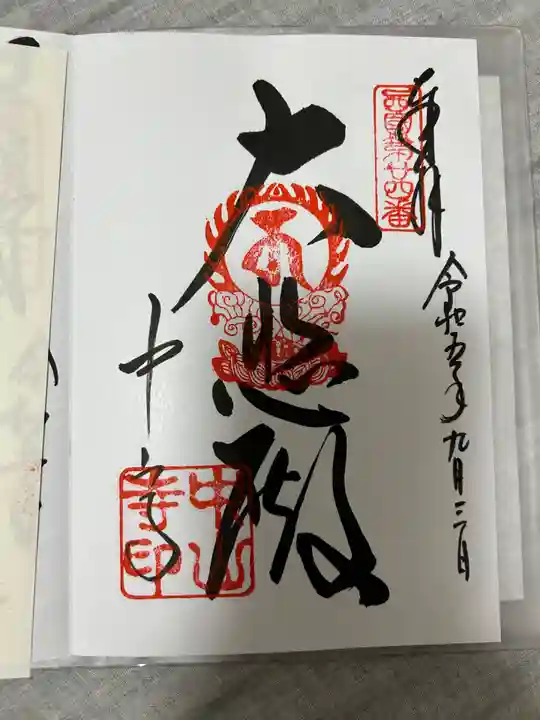 奉拝
西国第廿四番
令和五年九月三日
大悲殿
中山寺
中山寺印